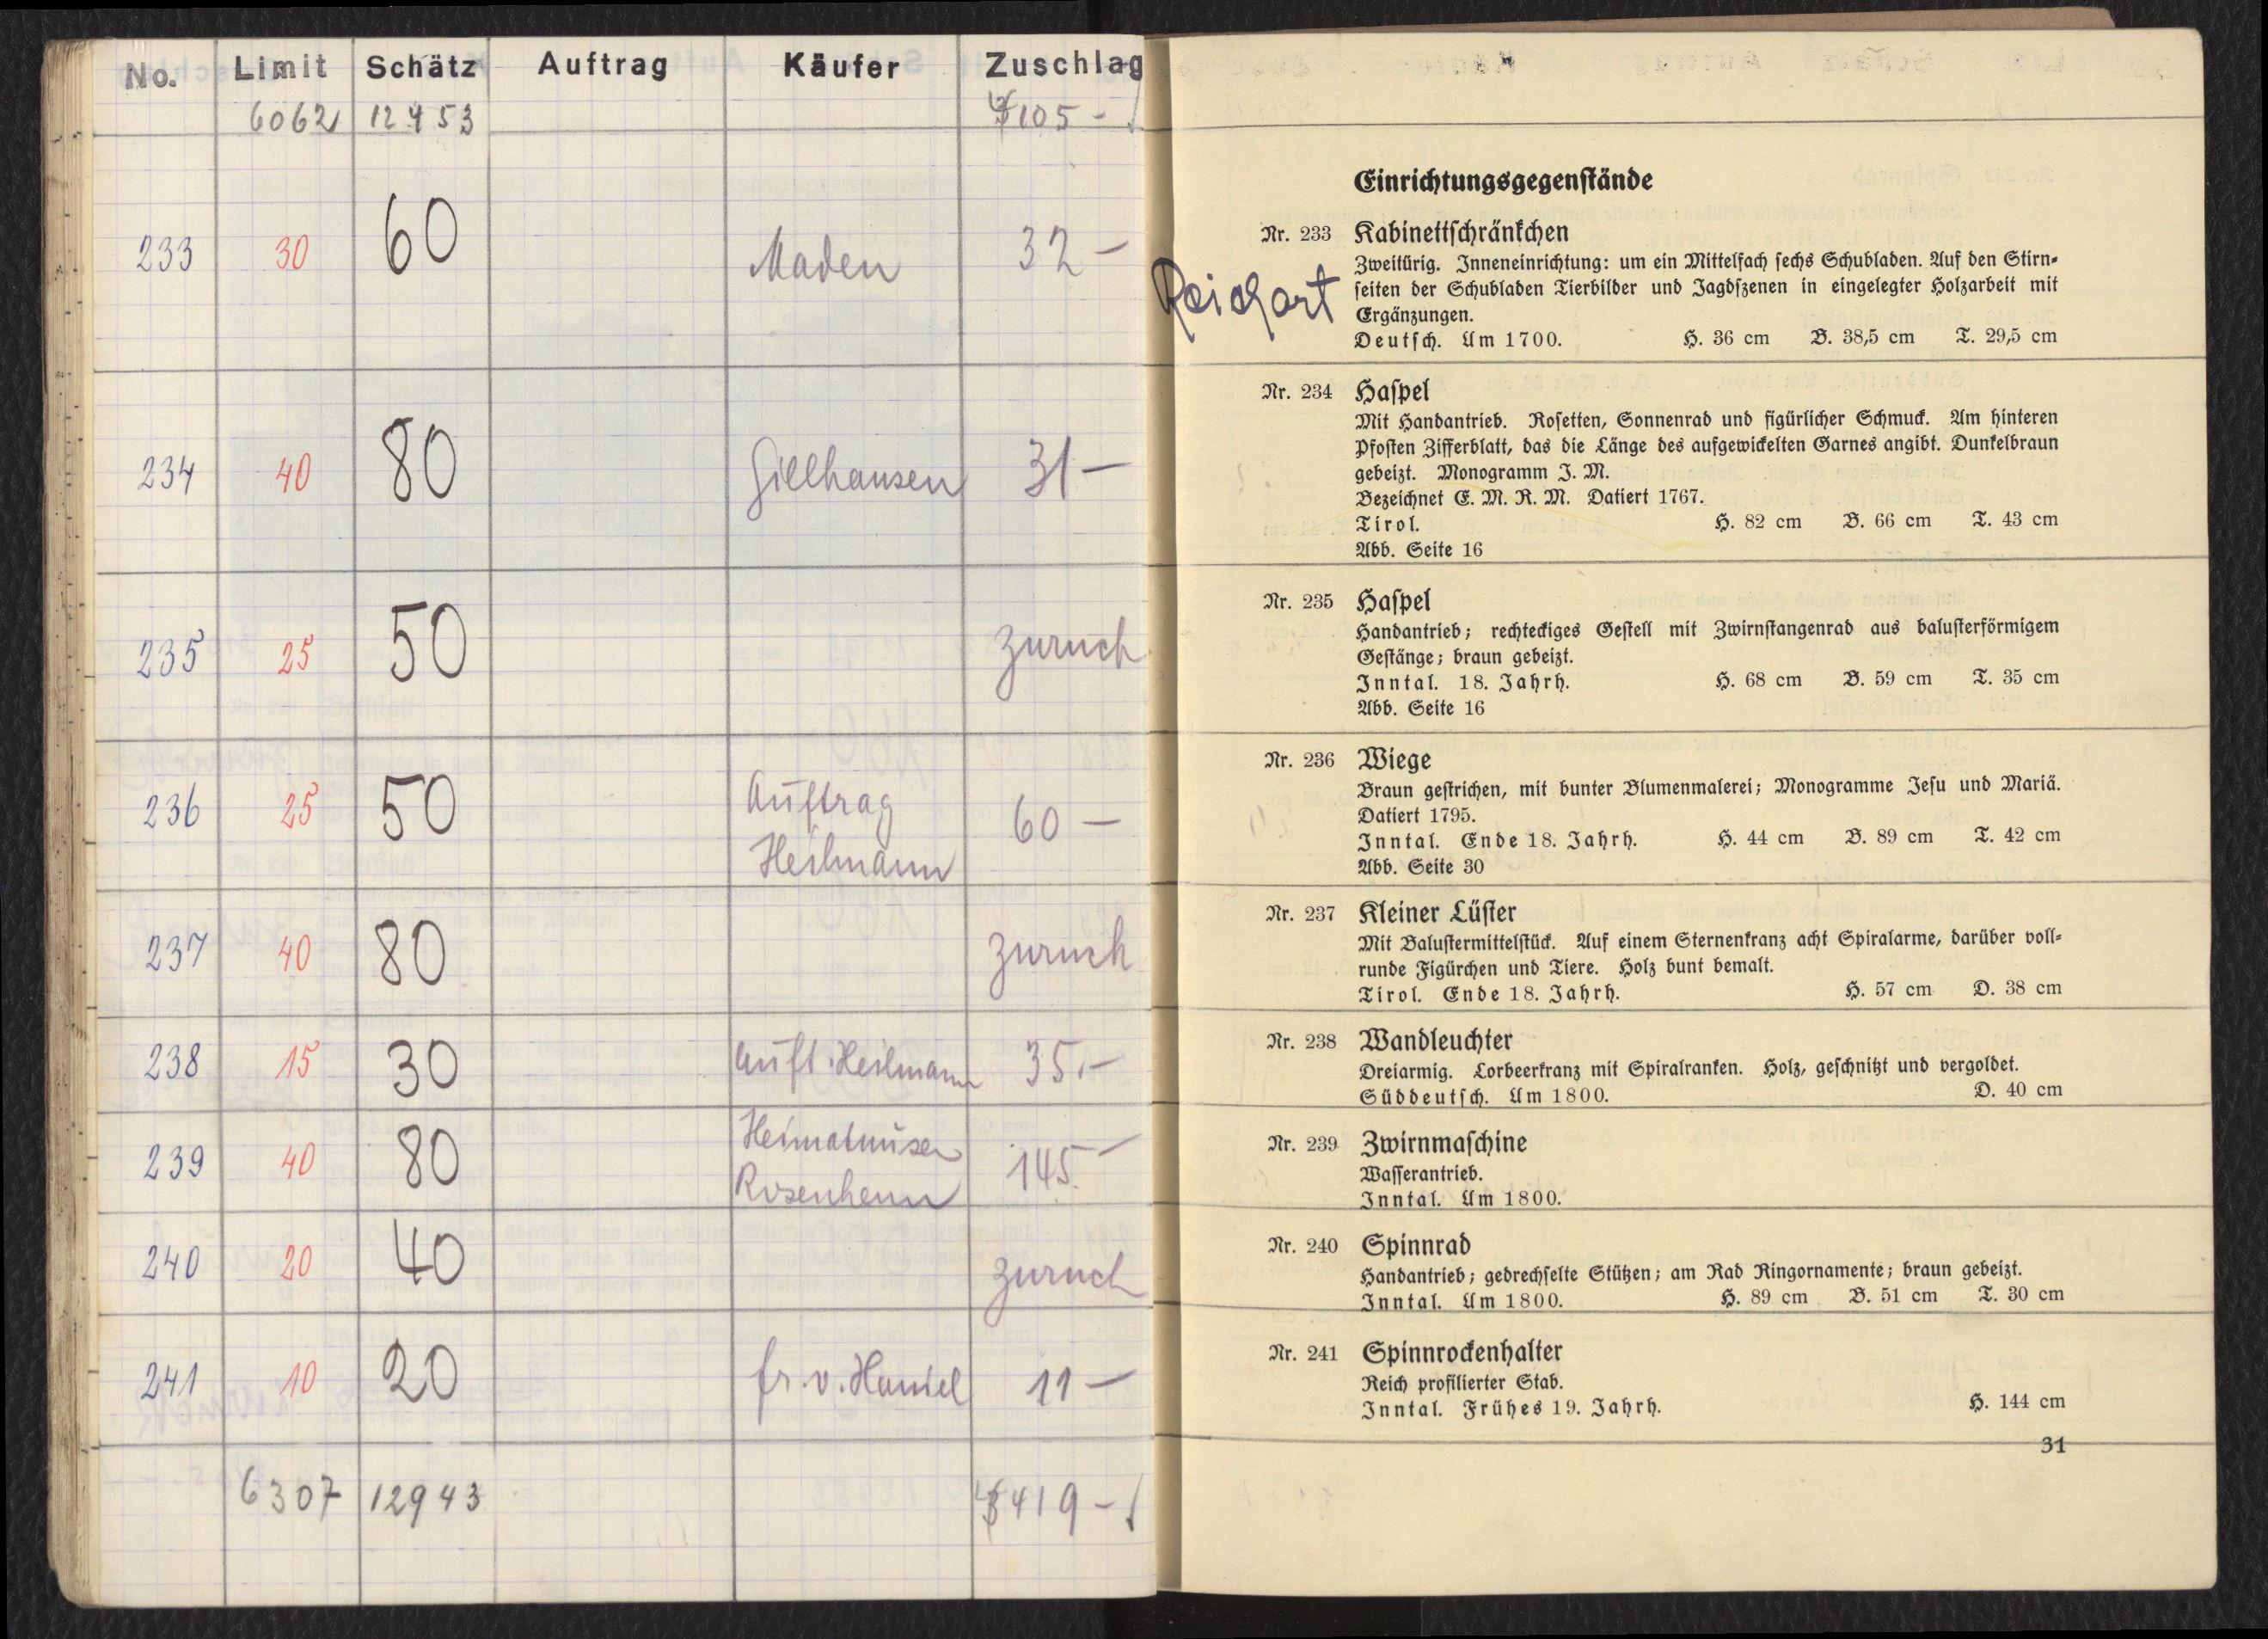 No. Limit Schätz Auftrag Käufer Zuschlag
6062 12453 105 -
233 30 60 Maden 32 -
234 40 80 Gillhausen 31 -
235 25 50 zuruck
236 25 50 Auftrag Heilmann 60 -
237 40 80 zuruck
238 15 30 Auft. Heilmann 35.-
239 40 80 Heimatmuseu Rosenheim 145 -
240 20 40 zuruck
241 10 20 fr. v. Haniel 11 -
6307 12943 419 -
Reichart
Einrichtungsgegenſtände
Nr. 233 Kabinettſchränkchen
Zweitürig. Inneneinrichtung: um ein Mittelfach ſechs Schubladen. Auf den Stirn-
ſeiten der Schubladen Tierbilder und Jagdſzenen in eingelegter Holzarbeit mit
Ergänzungen.
Deutſch. Um 1700. H. 36 cm B. 38,5 cm T. 29,5 cm
Nr. 234 Haſpel
Mit Handantrieb. Roſetten, Sonnenrad und figürlicher Schmuck. Am hinteren
Pfoſten Zifferblatt, das die Länge des aufgewickelten Garnes angibt. Dunkelbraun
gebeizt. Monogramm J. M.
Bezeichnet E. M. R. M. Datiert 1767.
Tirol. H. 82 cm B. 66 cm T. 43 cm
Abb. Seite 16
Nr. 235 Haſpel
Handantrieb; rechteckiges Geſtell mit Zwirnſtangenrad aus baluſterförmigem
Geſtänge; braun gebeizt.
Inntal. 18. Jahrh. H. 68 cm B. 59 cm T. 35 cm
Abb. Seite 16
Nr. 236 Wiege
Braun geſtrichen, mit bunter Blumenmalerei; Monogramme Jeſu und Mariä.
Datiert 1795.
Inntal. Ende 18. Jahrh. H. 44 cm B. 89 cm T. 42 cm
Abb. Seite 30
Nr. 237 Kleiner Lüſter
Mit Baluſtermittelſtück. Auf einem Sternenkranz acht Spiralarme, darüber voll-
runde Figürchen und Tiere. Holz bunt bemalt.
Tirol. Ende 18. Jahrh. H. 57 cm D. 38 cm
Nr. 238 Wandleuchter
Dreiarmig. Lorbeerkranz mit Spiralranken. Holz, geſchnitzt und vergoldet.
Süddeutſch. Um 1800. D. 40 cm
Nr. 239 Zwirnmaſchine
Waſſerantrieb.
Inntal. Um 1800.
Nr. 240 Spinnrad
Handantrieb; gedrechſelte Stützen; am Rad Ringornamente; braun gebeizt.
Inntal. Um 1800. H. 89 cm B. 51 cm T. 30 cm
Nr. 241 Spinnrockenhalter
Reich profilierter Stab.
Inntal. Frühes 19. Jahrh. H. 144 cm
31